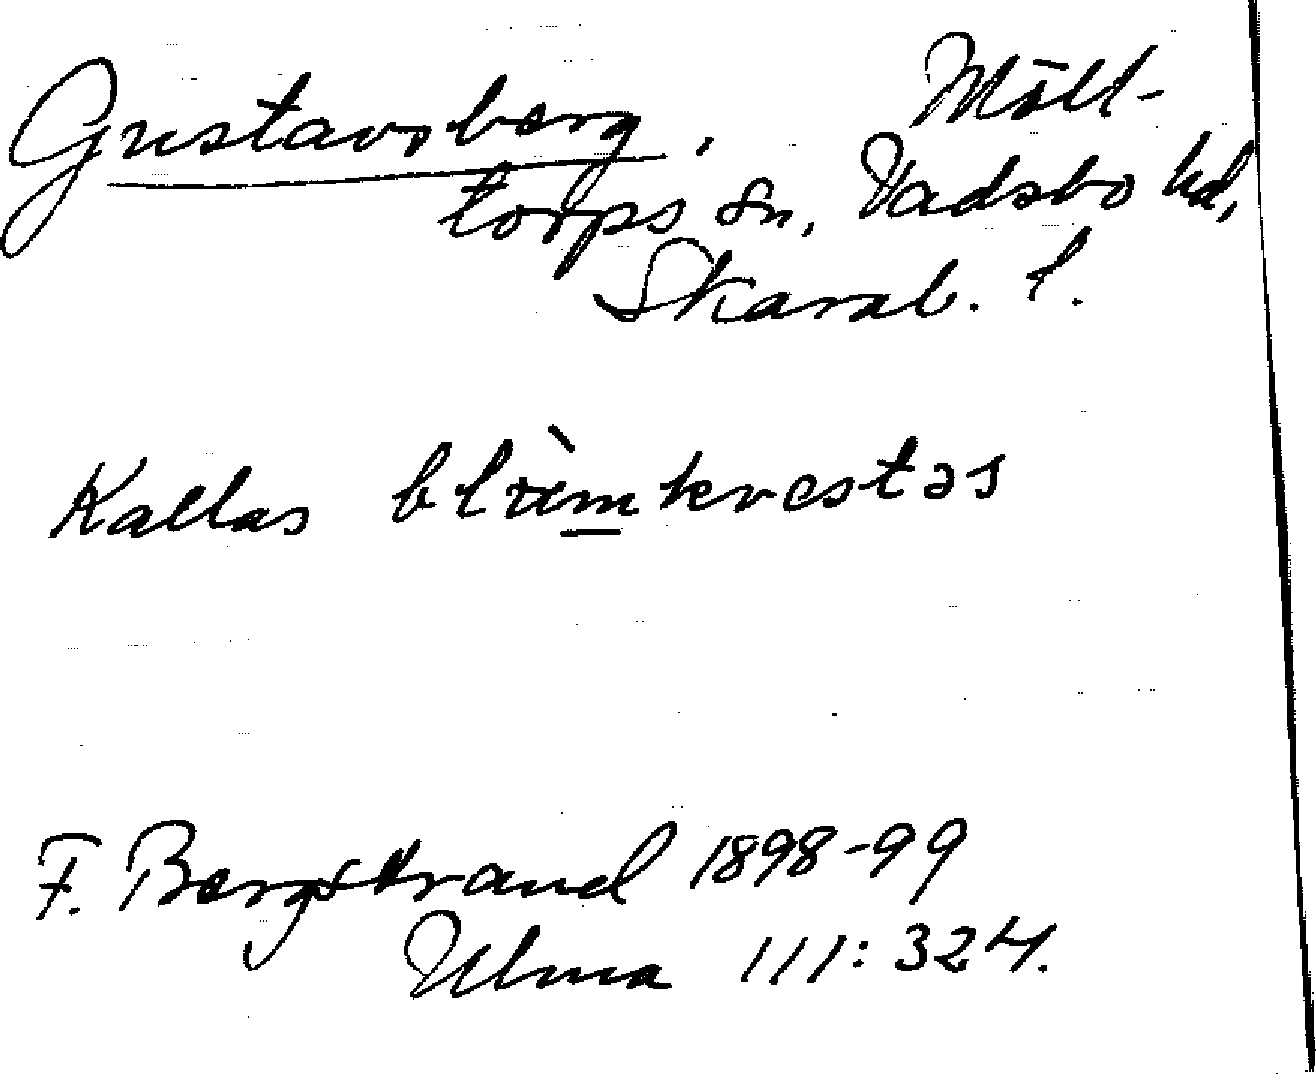 Gustavsberg, Mölltorps sn, Vadsbo hd,
Skarab. l.
Kallas blòmkvestəs
F. Bergstrand 1898-99
Ulma 111:324.